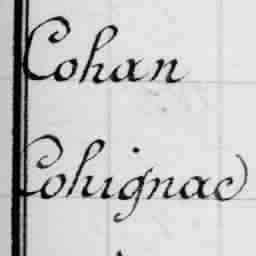 Cohan
Cohignac